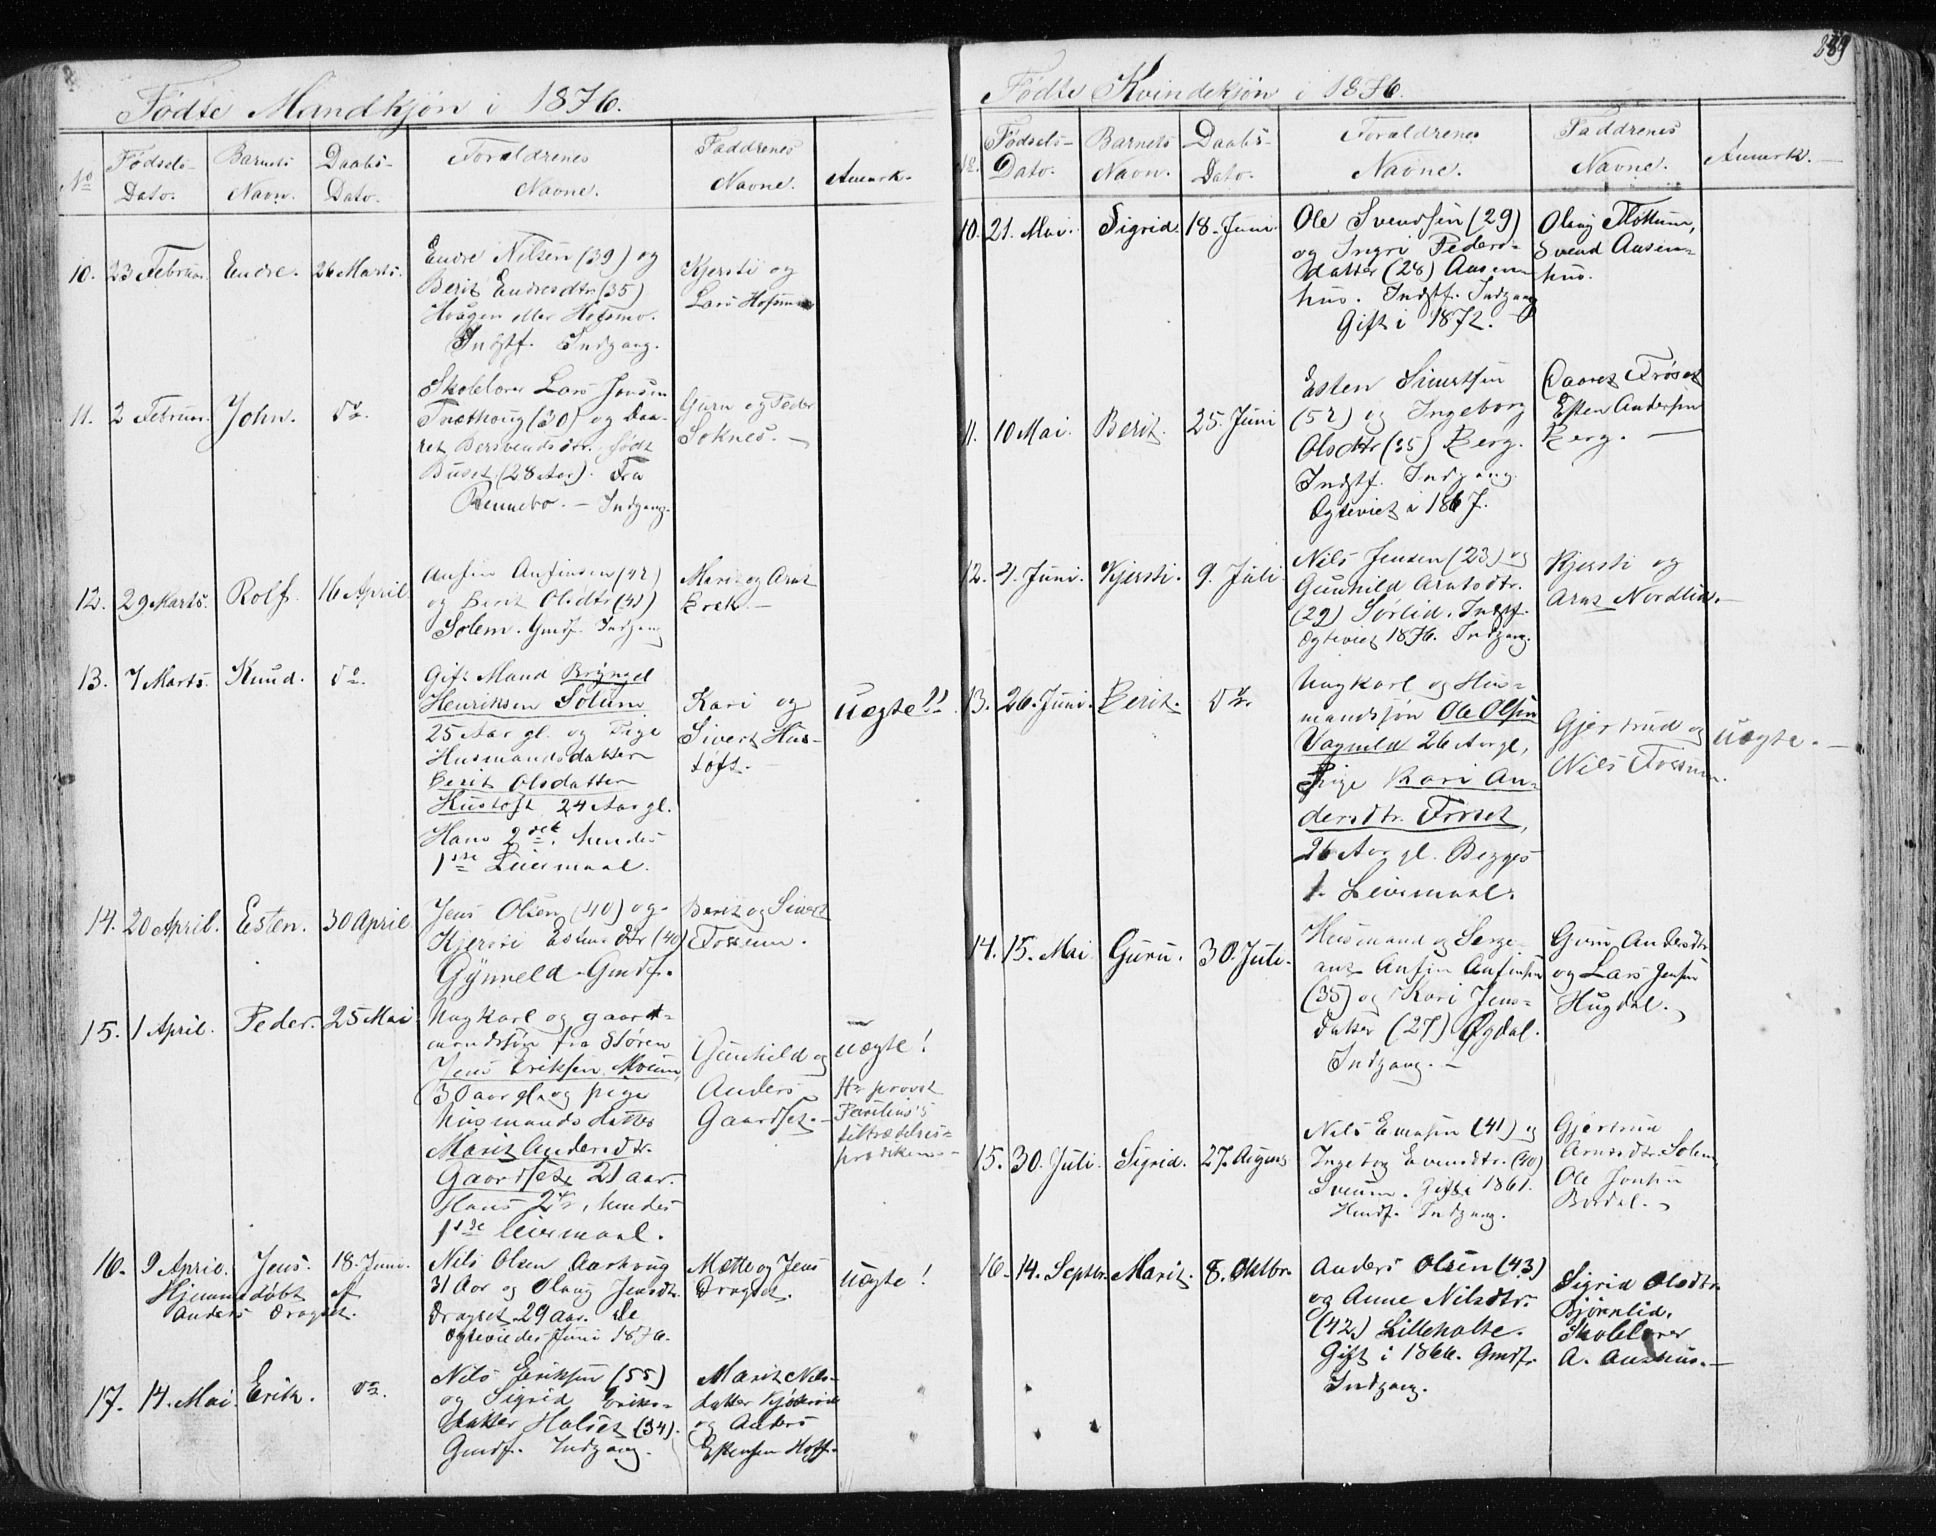 289
Fødte Mandkjøn i 1876.
No
Fødsels-
Dato.
Barnets
Navn.
Daabs-
Dato.
Forældrenes
Navne.
Faddrenes
Navne.
Anmerk.
10. 23 Februar. Endre. 26 Marts.
Endre Nilsen (39) og
Berit Endresdtr (35)
Haagen eller Hofsmo.
Indstf. Indgang.
Kjersti og
Lars Hofsmo
11. 2 Februar. John. do.
Skolelærer Lars Jensen
Træthoug (30) og Daa-
ret Bersvendsdtr. født
Buset (28 Aar). Fra
Rennebo. — Indgang.
Guru og Peder
Soknes. —
12. 29 Marts. Rolf. 16 April
Anfin Anfinsen (42)
og Berit Olsdtr
Solem. Gmdf. Indgang
Marit og Arnt
Bræk. —
13. 7 Marts. Knud. do.
Gift Mand Bryngel
Henriksen Solum
25 Aar gl. og Pige
Husmandsdatter
Berit Olsdatter
Hustoft 24 Aar gl.
Hans 2det, hendes
1ste Leiermaal.
Kari og
Sivert Hus-
toft. —
uægte!!
14. 20 April. Esten. 30 April
Jens Olsen (40) og
Kjersti Estensdtr (40)
Gynneld. Gmdf.
Berit og Sivert
Fossum.
15. 1 April. Peder. 25 Mai
Ungkarl og gaard-
mandssøn fra Støren
Jens Eriksen Moum,
30 aar gl. og pige
Husmandsdatter
Marit Andersdtr.
Gaardset, 21 aar.
Hans 2det, hendes
1ste leiermaal.
Gunhild og
Anders
Gaardset. —
uægte!
Hr provst
tiltrædelses-
prædiken. —
16. 9 April. Jens. 18. Juni.
Hjemmedøbt af
Anders Dragset.
Nils Olsen Aarhoug
31 Aar og Olaug Jensdtr.
Dragset 29 aar. De
ægteviedes Juni 1876.
Mætte og Jens
Dragset.
uægte!
17. 14. Mai. Erik. do.
Nils Eriksen (55)
og Sigrid Eriks-
datter Halset (34).
Gmdf. Indgang.
Marit Nils-
datter
og Anders
Estensen Hoff.
Fødte Kvindekjøn i 1876.
No.
Fødsels-
Dato.
Barnets
Navn.
Daabs-
Dato.
Forældrenes
Navne.
Faddrenes
Navne.
Anmerk. —
10. 21. Mai. Sigrid. 18. Juni
Ole Svendsen (29)
og Ingri Peders-
datter (28) Aasen-
hus. Indstf. Indgang
Gift i 1872.
Olaug Flottum,
Svend Aasen-
hus.
11. 10 Mai. Berit. 25. Juni
Esten Sivertsen
(52) og Ingeborg
Olsdtr (35) Berg.
Indstf. Indgang.
Ægteviet i 1867.
Daaret Frøset
Esten Andersen
Berg. —
12. 4. Juni. Kjersti. 9. Juli.
Nils Jensen (23) og
Gunhild Arntsdtr.
(29) Sørlid. Indstf.
Ægteviet 1876. Indgang.
Kjersti og
Arnt Nordlid. —
13. 26. Juni. Berit. do.
Ungkarl og Hus-
mandssøn Ole Olsen
Vagnild 26 Aar gl,
Pige Kari An-
dersdtr. Frøset,
26 Aar gl. Begges
1. Leiermaal.
Gjertrud og
Nils Fossum.
uægte. —
14. 15. Mai Guru. 30. Juli.
Husmand og Serge-
ant Anfin Anfinsen
(35) og Kari Jens-
datter (27) Øgdal.
Indgang. —
Guru Andersdtr
og Lars Jensen
Hugdal.
15. 30. Juli. Sigrid. 27. August
Nils Evensen (41) og
Ingebog Evensdtr. (40)
Sveum. Gift i 1861.
Hmdf. Indgang.
Gjertrud
Arnesdtr. Solem,
Ole Jonsen
Bordal.
16. 14. Septbr. Marit. 8. Oktbr.
Anders Olsen (43)
og Anne Nilsdtr.
(42) Lillehalte.
Gift i 1866. Gmdf.
Indgang.
Sigrid Olsdtr.
Bjørnlid.
Skolelærer
A. Aashus. —